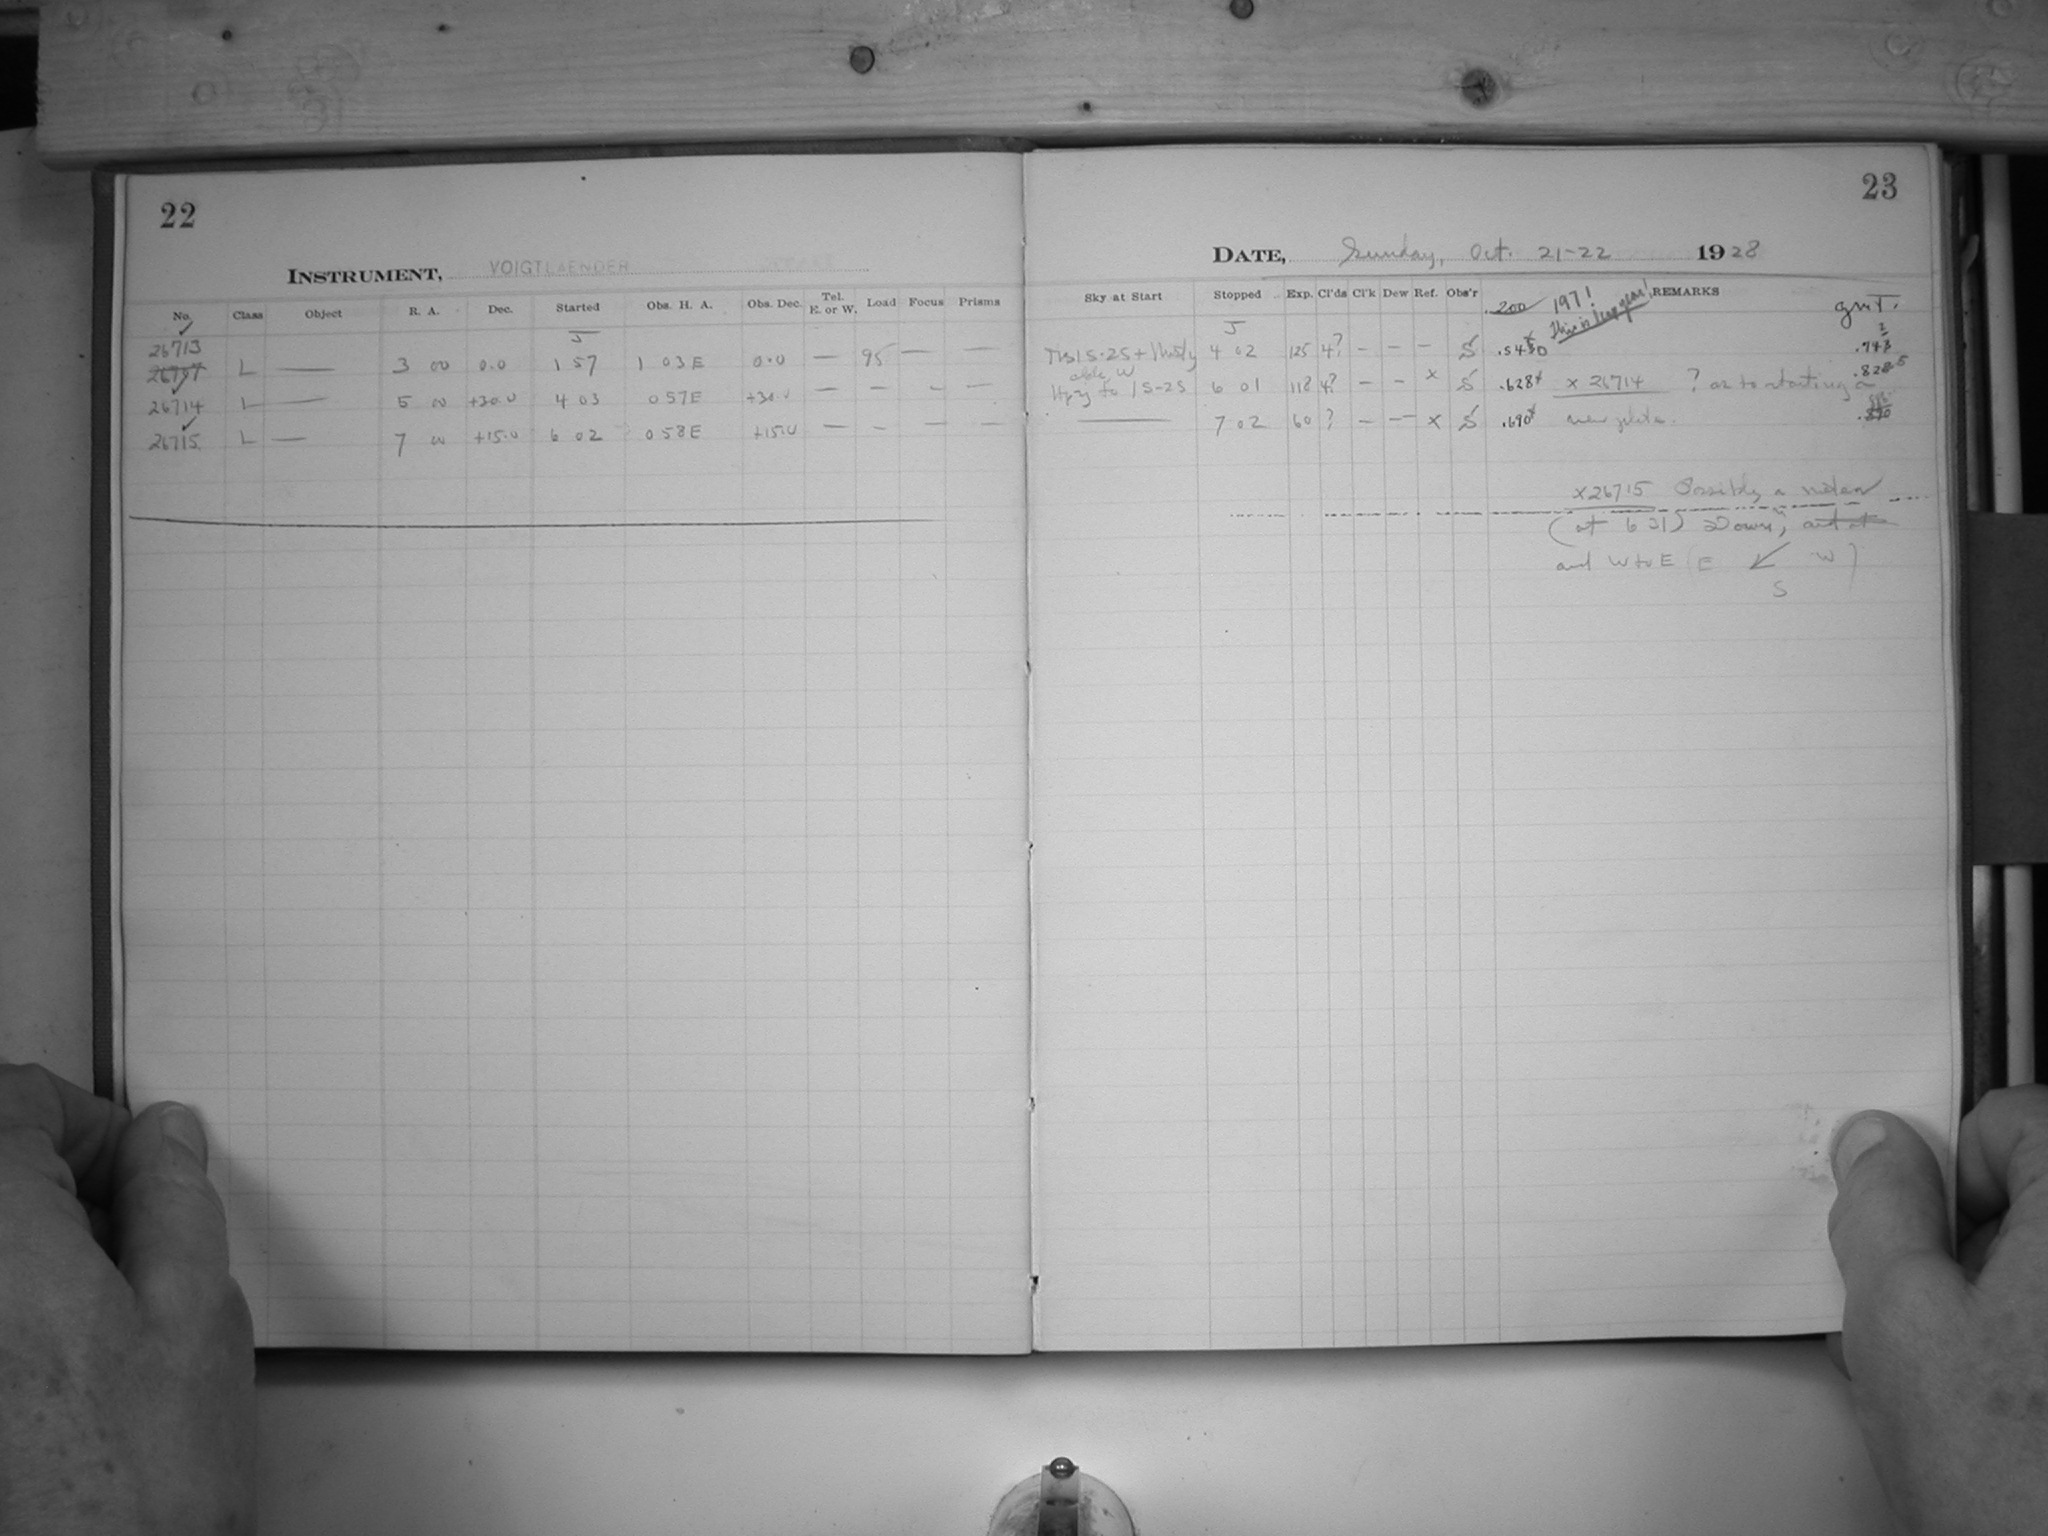 22
INSTRUMENT, VOIGTLAENDER
No. Class Object R. A. Dec. Started Obs. H. A. Obs. Dec. Tel. E. or W. Load Focus Prisms
26713
26707 L — 3 00 0.0 1 57 1 03 E 0.0 — 95 — —
26714 L — 5 00 +30.0 4 03 0 57 E +30.0 — — — —
26715 L — 7 00 +15.0 6 02 0 58 E +15.0 — — — —
23
DATE, Sunday, Oct. 21-22 1928
Sky at Start Stopped Exp. Cl'ds Cl'k Dew Ref. Obs'r REMARKS
200 197! This is leap year! G.M.T.
4 02 125 4? — — — S
6 01 118 4? — — x S .628 x 26714 ? as to starting a
— 7 02 60 ? — — x S .690 new plate.
x26715 Possibly a meteor
(at 6 31) Down, and at
and W to E (E ↙ W)
S